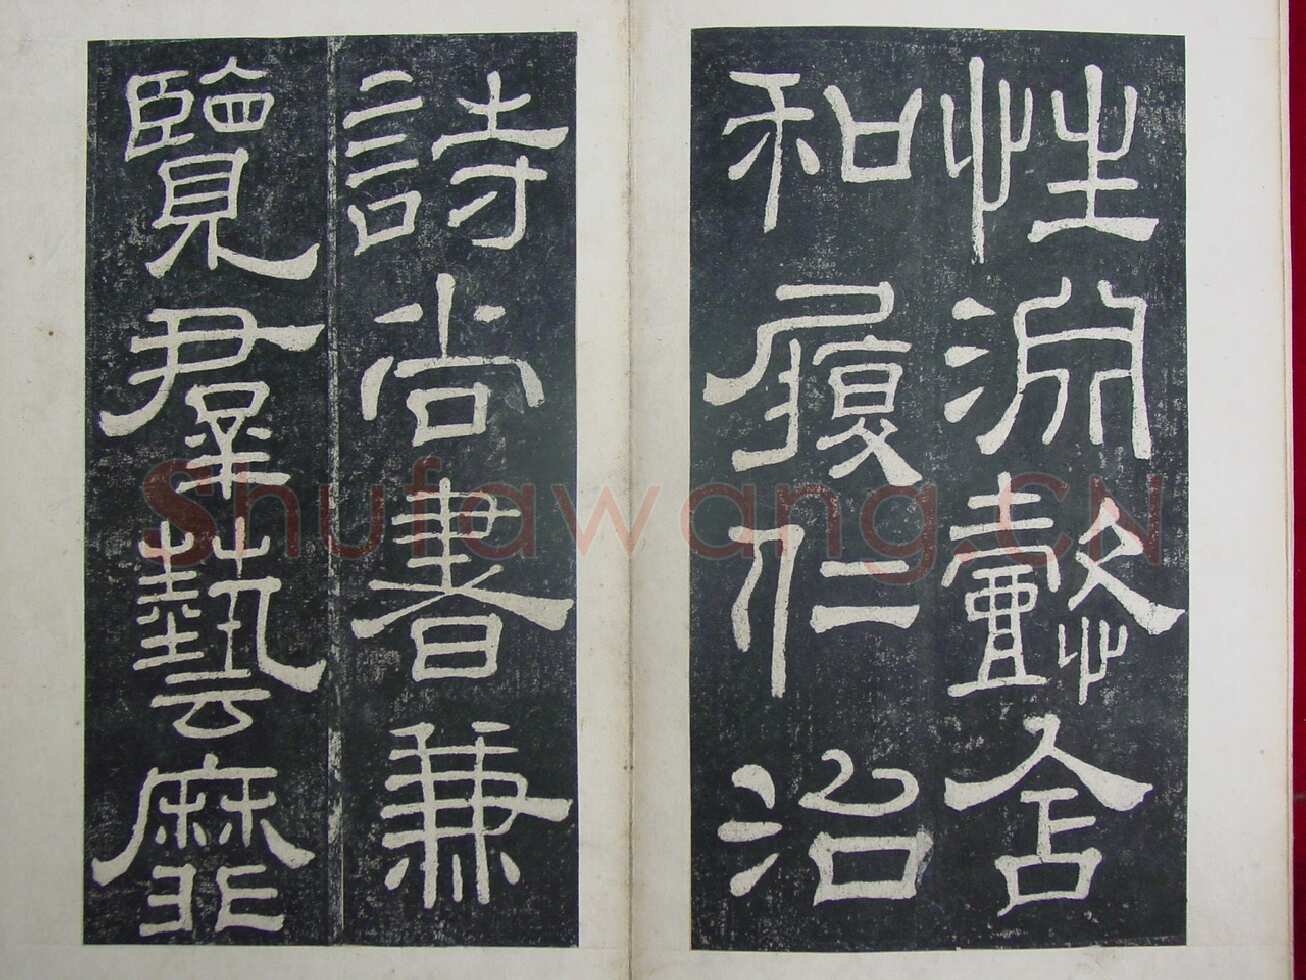 性淵懿含
和履仁治
詩尚書兼
覽羣藝靡
Shufawang.CN